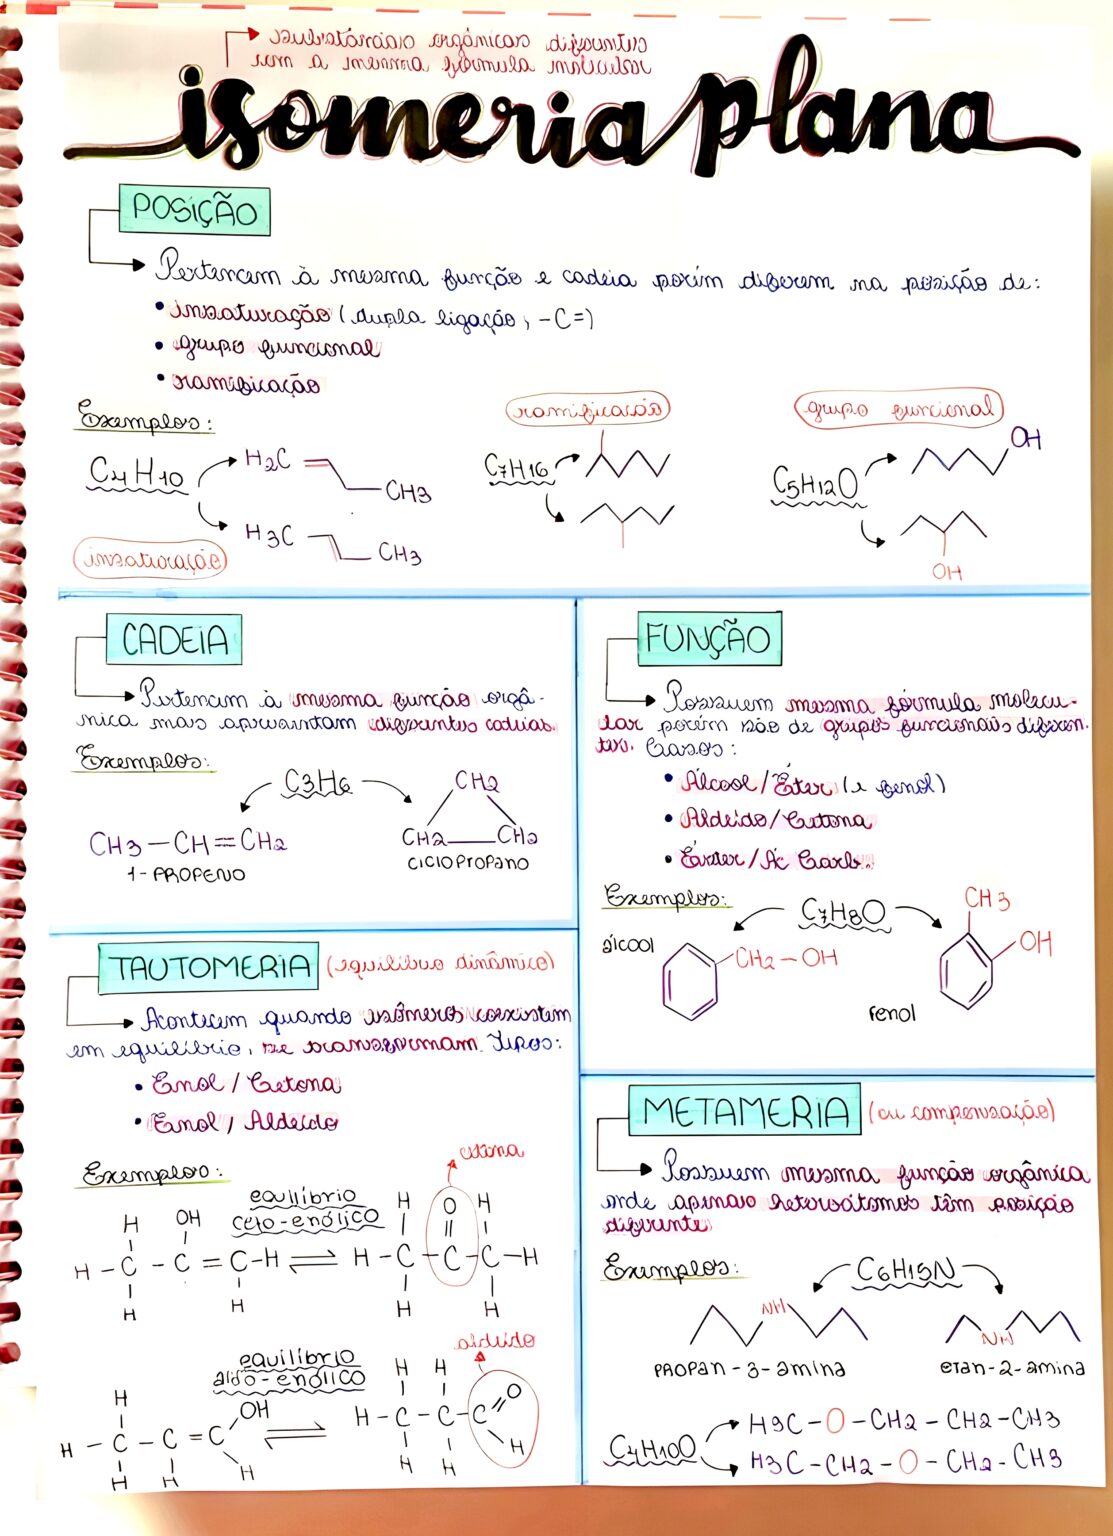 isomeria plana
POSIÇÃO
Pertencem à mesma função e cadeia porém diferem na posição de:
• insaturação (dupla ligação, -C=)
• grupo funcional
• ramificação
Exemplos:
C4H10
H2C
CH3
H3C
CH3
insaturação
ramificação
C7H16
grupo funcional
C5H12O
OH
OH
CADEIA
Pertencem à mesma função orgâ-
nica mas apresentam diferentes cadeias.
Exemplos:
C3H6
CH3—CH=CH2
1-PROPENO
CH2
CH2 CH2
CICLOPROPANO
FUNÇÃO
Possuem mesma fórmula molecu-
lar porém são de grupos funcionais diferen-
tes. Casos:
• Álcool/Éter (e fenol)
• Aldeído/Cetona
• Éster/Ác Carb.
Exemplos:
C7H8O
álcool
CH2-OH
CH3
OH
Fenol
TAUTOMERIA (equilíbrio dinâmico)
Acontecem quando isômeros coexistem
em equilíbrio, se transformam. Tipos:
• Enol / Cetona
• Enol / Aldeído
Exemplos:
equilíbrio
ceto-enólico
cetona
H OH
H - C - C = C-H
H H
H O H
H-C-C-C-H
H H
equilíbrio
aldo-enólico
aldeído
H OH
H - C - C = C
H H H
H H O
H-C-C-C
H H H
METAMERIA (ou compensação)
Possuem mesma função orgânica
onde apenas heteroátomos têm posição
diferente
Exemplos:
C6H15N
NH
PROPAN-3-amina
NH
etan-2-amina
C4H10O
H3C-O-CH2-CH2-CH3
H3C-CH2-O-CH2-CH3